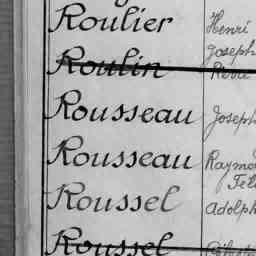 Roulier Henri
Joseph
Roulin Pierre
Rousseau Joseph
Rousseau Raymo
Féli
Roussel Adolph
Roussel